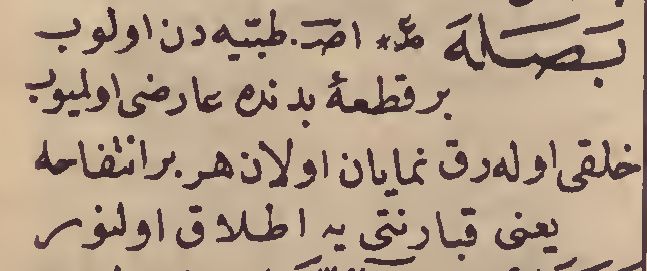 بَصَلَهَ * اصـ. طبیّه دن اولوب
بر قطعهٔ بدنده عارضی اولمیوب
خلقی اوله رق نمایان اولان هر بر انتفاخه
یعنی قبارنتی یه اطلاق اولنور